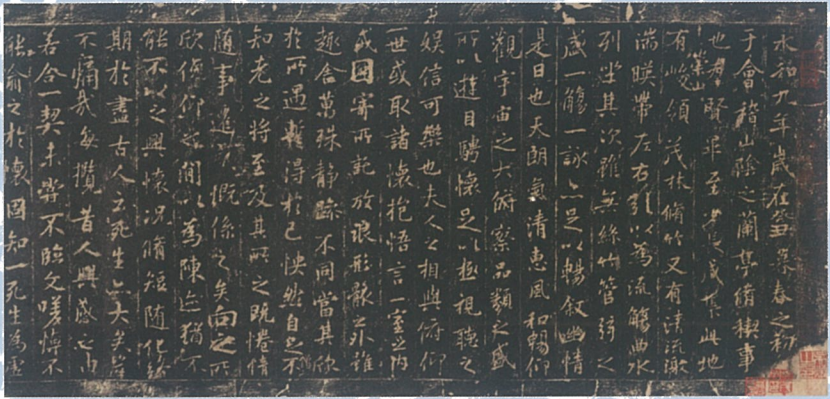 永和九年歲在癸丑暮春之初
于會稽山陰之蘭亭脩禊事
也羣賢畢至少長咸集此地
有崇山峻領茂林脩竹又有清流激
湍暎帶左右引以為流觴曲水
列坐其次雖無絲竹管弦之
盛一觴一詠亦足以暢敘幽情
是日也天朗氣清惠風和暢仰
觀宇宙之大俯察品類之盛
所以遊目騁懷足以極視聽之
娛信可樂也夫人之相與俯仰
一世或取諸懷抱悟言一室之內
或因寄所託放浪形骸之外雖
趣舍萬殊靜躁不同當其欣
於所遇暫得於己怏然自足不
知老之將至及其所之既惓情
隨事遷感慨係之矣向之所
欣俛仰之間以為陳迹猶不
能不以之興懷況脩短隨化終
期於盡古人云死生亦大矣豈
不痛哉每攬昔人興感之由
若合一契未嘗不臨文嗟悼不
能喻之於懷固知一死生為虛